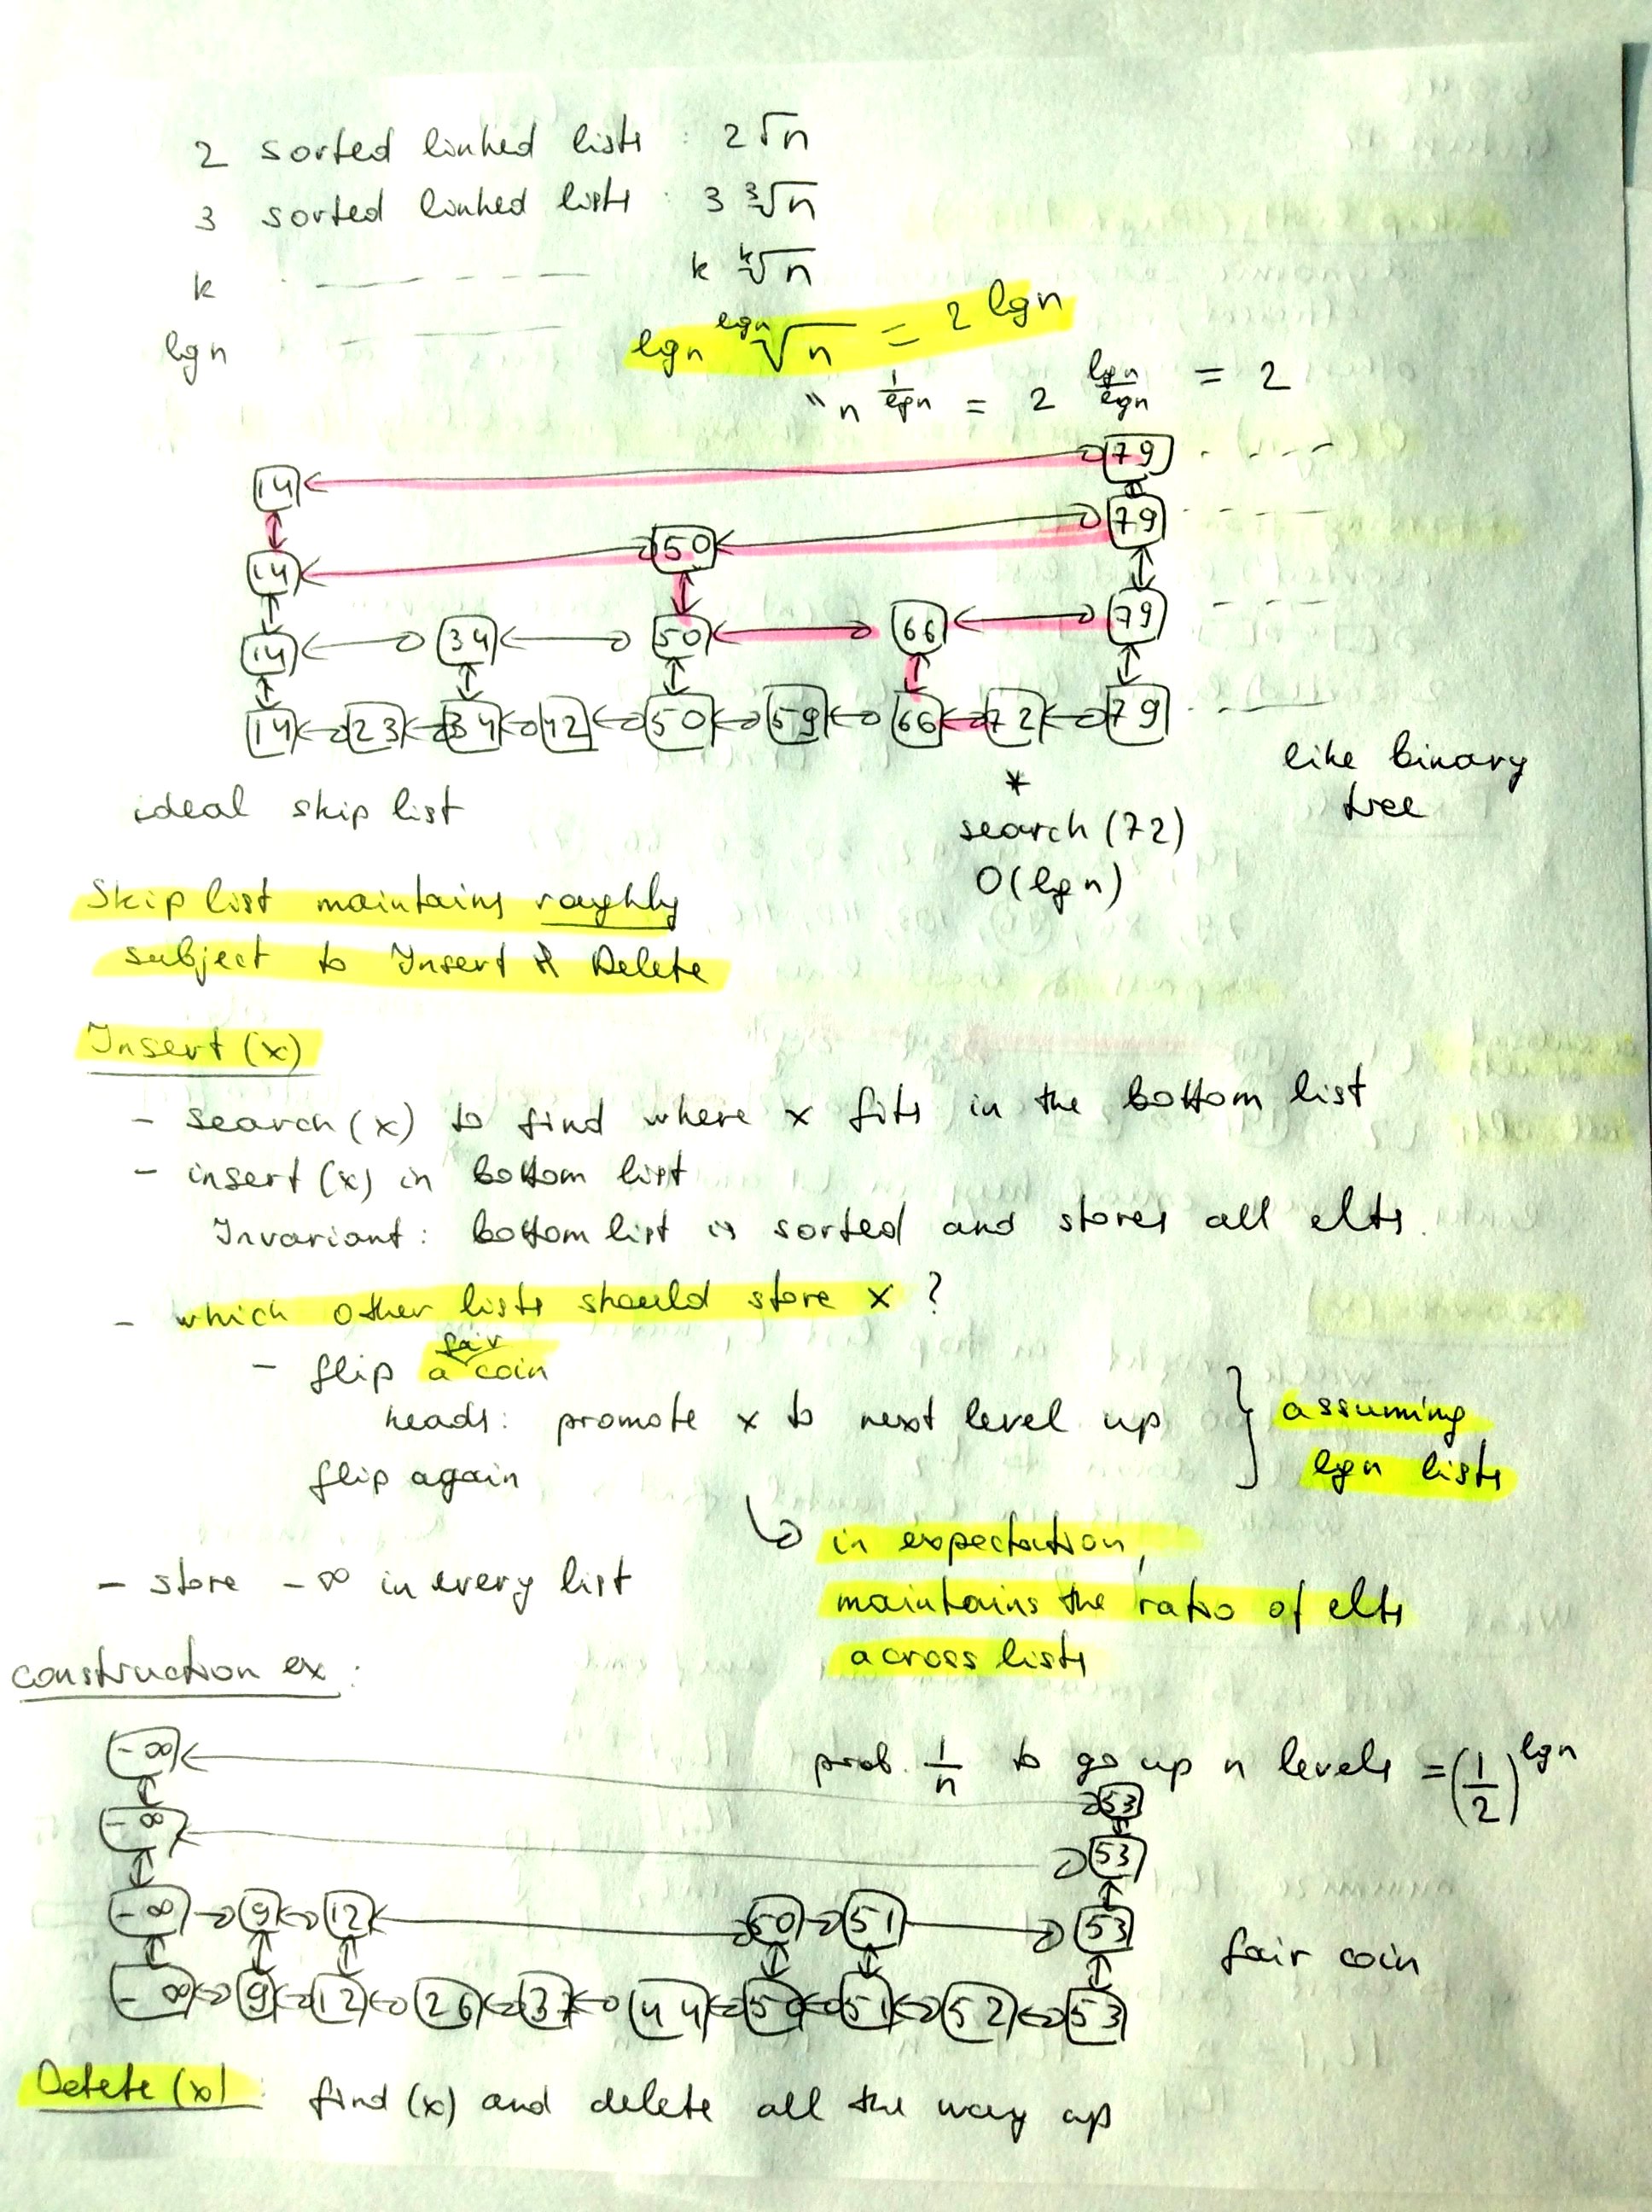 2 sorted linked lists : 2 √n
3 sorted linked lists : 3 ∛n
k - - - - - - k ᵏ√n
lgn - - - lgn ˡᵍⁿ√n = 2 lgn
" n^(1/lgn) = 2^(lgn/lgn) = 2
14 79 - - -
14 50 79 - - - -
14 34 50 66 79 - - -
14 23 34 42 50 59 66 72 79 - - -
like binary
tree
*
ideal skip list
search (72)
O(lgn)
Skip list maintains roughly
subject to Insert & Delete
Insert (x)
- search (x) to find where x fits in the bottom list
- insert (x) in bottom list
Invariant : bottom list is sorted and stores all elts.
- which other lists should store x ?
- flip a fair coin
heads: promote x to next level up } assuming
flip again lgn lists
↳ in expectation,
- store -∞ in every list
maintains the ratio of elts
across lists
construction ex :
prob. 1/n to go up n levels = (1/2)^lgn
-∞ 53
-∞ 53
-∞ 9 12 50 51 53
fair coin
-∞ 9 12 26 37 44 50 51 52 53
Delete (x) : find (x) and delete all the way up